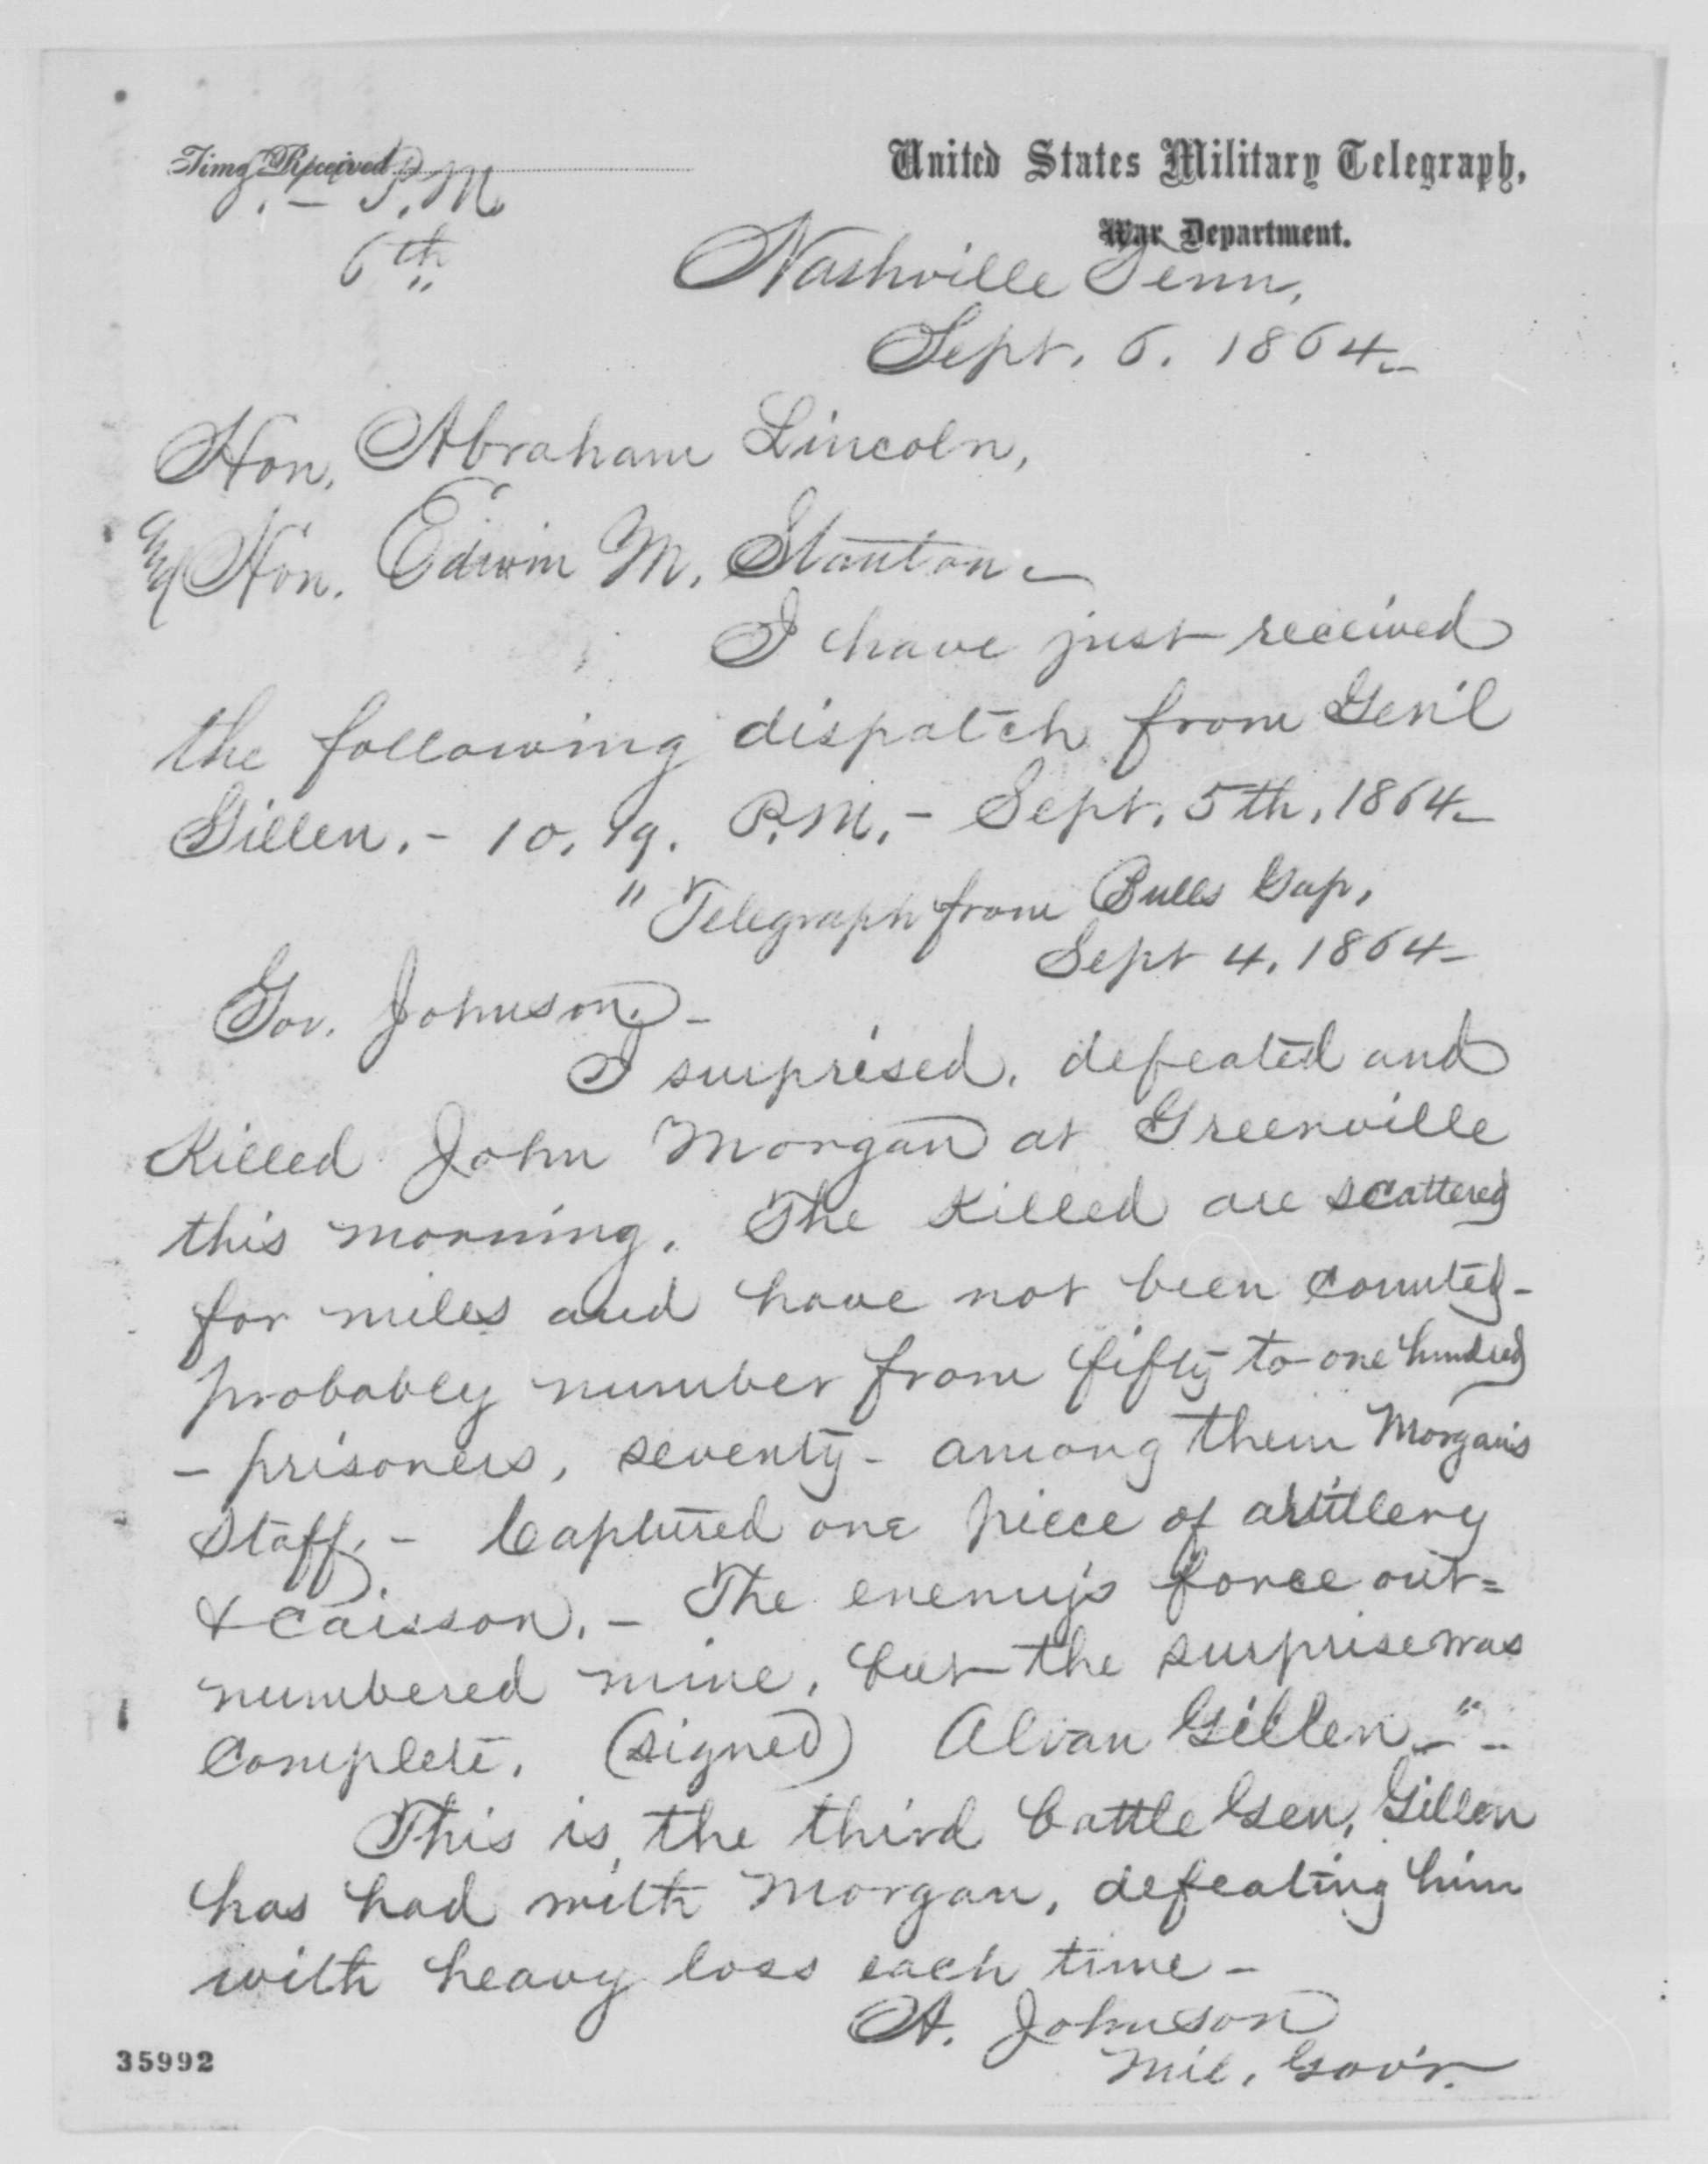 Time Received P.M.
6th
United States Military Telegraph,
War Department.
Nashville Tenn,
Sept. 6. 1864-
Hon. Abraham Lincoln,
Hon. Edwin M. Stanton-
I have just received
the following dispatch from Gen'l
Gillen.- 10,19. P.M.- Sept. 5th, 1864-
" Telegraph from Bulls Gap,
Sept 4, 1864-
Gov. Johnson.-
I surprised, defeated and
Killed John Morgan at Greenville
this morning. The Killed are scattered
for miles and have not been counted-
probably number from fifty to one hundred
- prisoners, seventy- among them Morgan's
Staff.- Captured one piece of artillery
& caisson.- The enemy's force out=
numbered mine, but the surprise was
Complete. (signed) Alvan Gillen-"-
This is the third battle Gen, Gillen
has had with Morgan, defeating him
with heavy loss each time-
A. Johnson
Mil, Gov'r.
35992